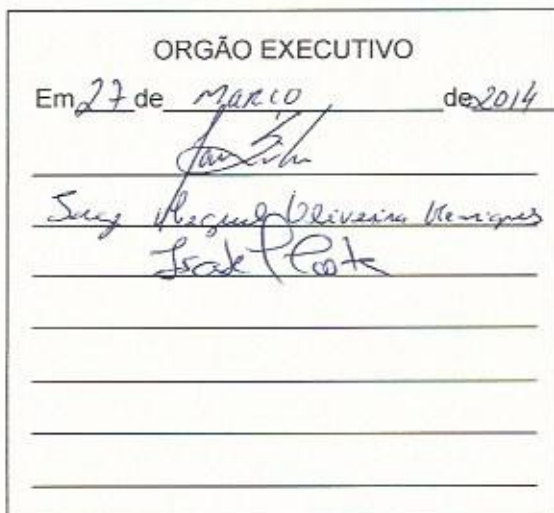 ORGÃO EXECUTIVO
Em 27 de MARÇO de 2014
Miguel Oliveira Henriques
Isabel Costa